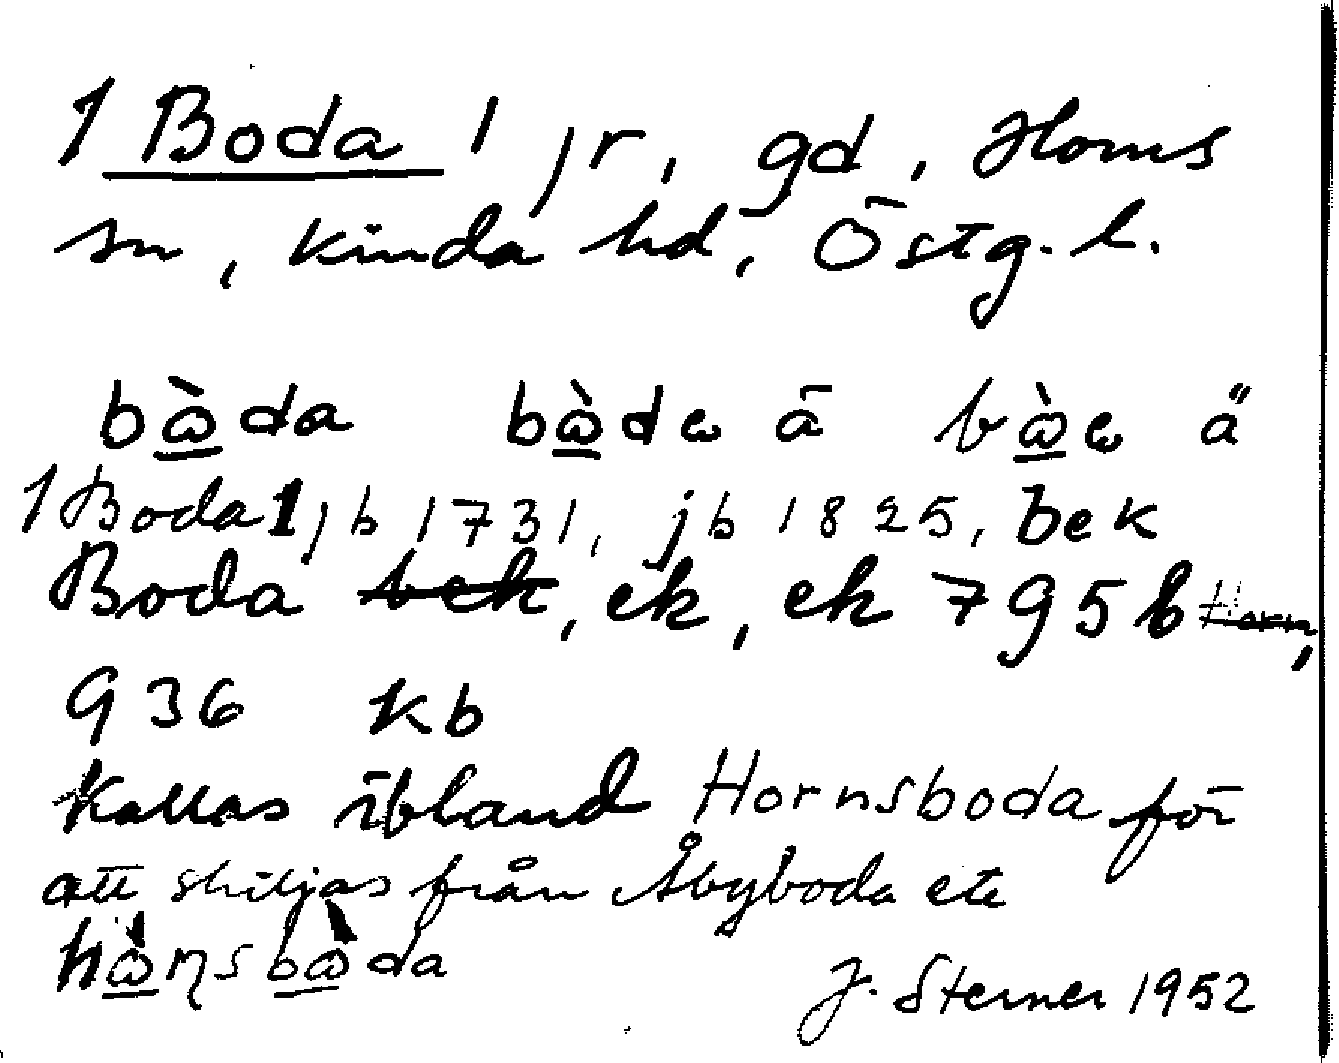 1 Boda 1 jr, gd, Horns
sn, Kinda hd, Östg. l.
bὼ̲da bὼ̲dɐ ā bὼ̲ɐ ä
1 Boda 1 jb 1731, jb 1825, bek
Boda bek, ek, ek 795 b Horn,
936 kb
Kallas ibland Hornsboda för
att skiljas från Åbyboda etc
hὼ̲ɳsbὼ̲da
J. Sterner 1952